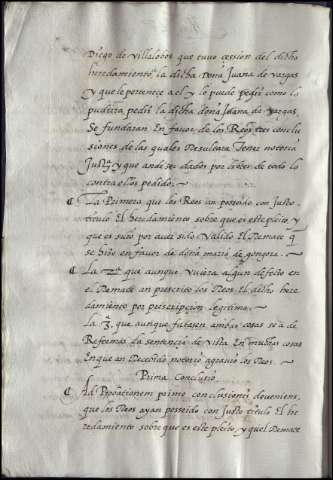 Diego de villalobos que tuvo cession del dicho
heredamiento la dicha Doña Juana de vargas
y que le pertenece a el y lo puede pedir como lo
pudiera pedir la dicha doña Juana de vargas.
Se fundaran En favor de los Reos tres conclu
siones de las quales Resultara Tener notoria
Just.ª y que an de ser dados por libres de todo lo
contra ellos pedido.
La Primera que los Reos an posseido con justo
titulo El heredamiento sobre que es este pleito, y
que es suio por aver sido valido El Remate q̃
se hiço en favor de doña maria de gongora.
La 2ª que aunque vuiera algun defecto en
el Remate an prescrito los Reos El dicho here
damiento por prescripcion legitima.
La 3ª. que aunque futasen ambas cosas se a de
Reformar la sentencia de vista En muchas cosas
En que an Recevido notorio agravio los Reos.
Prima Conclusio.
Ad Probationem primæ conclusionis deveniens,
que los Reos ayan posseido con Justo titulo El he
redamiento sobre que es este pleito, y que el Remate